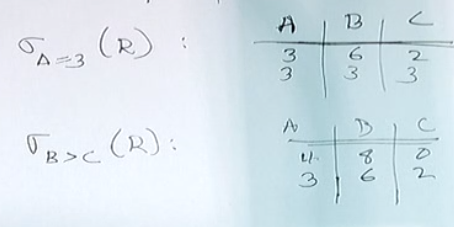 σ A=3 (R) :
A B C
3 6 2
3 3 3
σ B>C (R) :
A B C
4 8 0
3 6 2